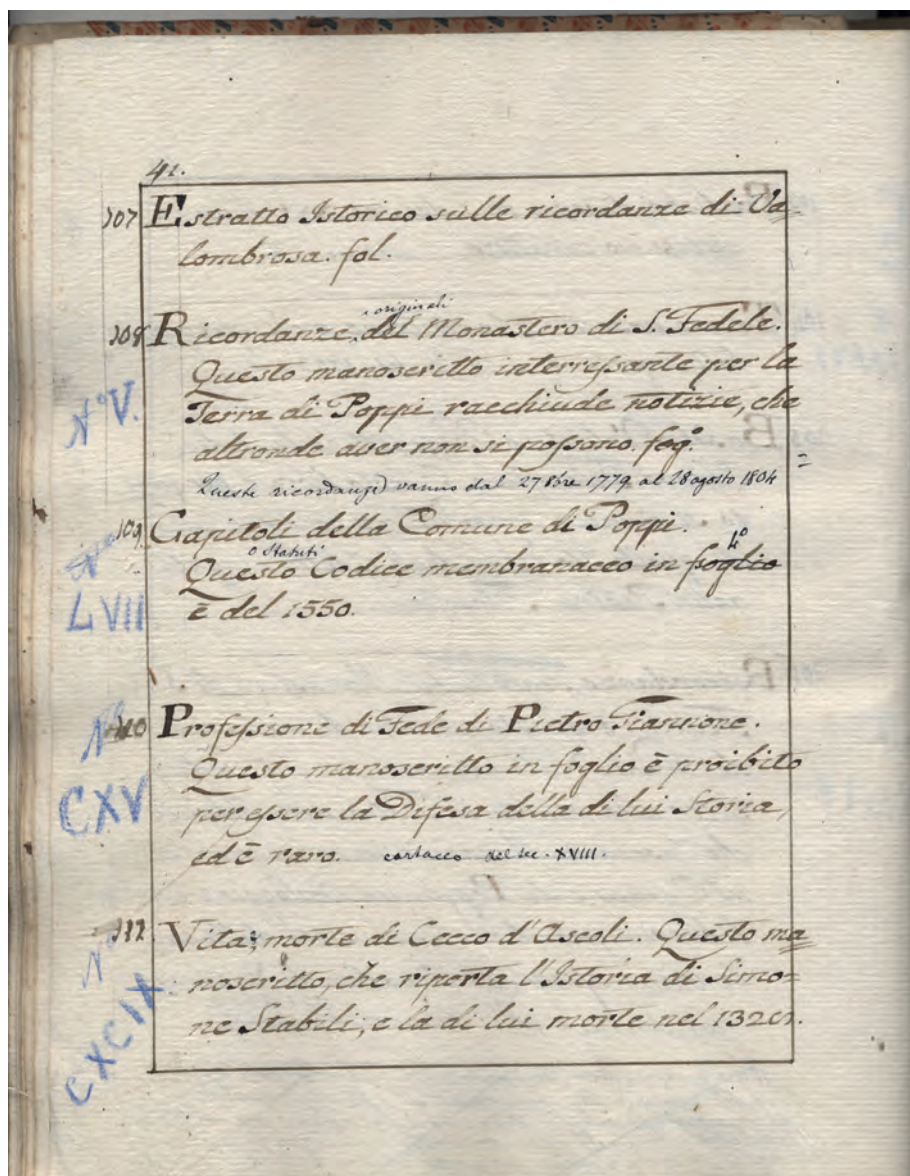 41.
107 Estratto Istorico sulle ricordanze di Va=
lombrosa. fol.
originali
108 Ricordanze, del Monastero di S. Fedele.
Questo manoscritto interressante per la
N.° V. Terra di Poppi racchiude notizie, che
altronde aver non si possono. fog.°
Queste ricordanze vanno dal 27 8bre 1779 al 28 agosto 1804 =
109 Capitoli della Comune di Poppi.
o Statuti 4°
Questo Codice membranaceo in foglio
LVII è del 1550.
N° 110 Professione di Fede di Pietro Giannone.
Questo manoscritto in foglio è proibito
CXV per essere la Difesa della di lui Storia,
ed è raro. cartaceo del sec. XVIII.
111 Vita, e morte di Cecco d'Ascoli. Questo ma=
N° noscritto, che riporta l'Istoria di Simo=
CXCIX ne Stabili, e la di lui morte nel